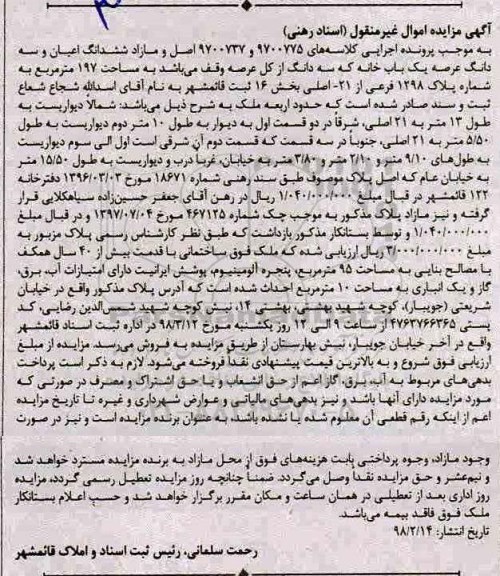 آگهی مزایده اموال غیرمنقول (اسناد رهنی)
به موجب پرونده اجرایی کلاسه‌های ۹۷۰۰۷۷۵ و ۹۷۰۰۷۳۷ اصل و مازاد ششدانگ اعیان و سه
دانگ عرصه یک باب خانه که سه دانگ از کل عرصه وقف می‌باشد به مساحت ۱۹۷ مترمربع به
شماره پلاک ۱۲۹۸ فرعی از ۲۱- اصلی بخش ۱۶ ثبت قائمشهر به نام آقای اسدالله شجاع شعاع
ثبت و سند صادر شده است که حدود اربعه ملک به شرح ذیل می‌باشد: شمالاً دیواریست به
طول ۱۳ متر به ۲۱ اصلی، شرقاً در دو قسمت اول به دیوار به طول ۱۰ متر دوم دیواریست به طول
۵/۵۰ متر به ۲۱ اصلی، جنوباً در سه قسمت که قسمت دوم آن شرقی است اول الی سوم دیواریست
به طول‌های ۹/۱۰ متر و ۲/۱۰ متر و ۳/۸۰ متر به خیابان، غرباً درب و دیواریست به طول ۱۵/۵۰ متر
به خیابان عام که اصل پلاک موصوف طبق سند رهنی شماره ۱۸۶۷۱ مورخ ۱۳۹۶/۰۳/۰۳ دفترخانه
۱۲۲ قائمشهر در قبال مبلغ ۱/۰۴۰/۰۰۰/۰۰۰ ریال در رهن آقای جعفر حسین‌زاده سیاهکلایی قرار
گرفته و نیز مازاد پلاک مذکور به موجب چک شماره ۴۶۷۱۲۵ مورخ ۱۳۹۷/۰۷/۰۴ و در قبال مبلغ
۱/۰۴۰/۰۰۰/۰۰۰ و توسط بستانکار مذکور بازداشت که طبق نظر کارشناس رسمی پلاک مزبور به
مبلغ ۳/۰۰۰/۰۰۰/۰۰۰ ریال ارزیابی شده که ملک فوق ساختمانی با قدمت بیش از ۴۰ سال همکف
با مصالح بنایی به مساحت ۹۵ مترمربع، پنجره آلومینیوم، پوشش ایرانیت دارای امتیازات آب، برق،
گاز و یک انباری به مساحت ۱۰ مترمربع احداث شده است که آدرس پلاک مذکور واقع در خیابان
شریعتی (جویبار)، کوچه شهید بهشتی، بهشتی ۱۴، نبش کوچه شهید شمس‌الدین رضایی، کد
پستی ۴۷۶۳۷۶۶۳۶۵ از ساعت ۹ الی ۱۲ روز یکشنبه مورخ ۹۸/۳/۱۲ در اداره ثبت اسناد قائمشهر
واقع در آخر خیابان جویبار، نبش بهارستان از طریق مزایده به فروش می‌رسد. مزایده از مبلغ
ارزیابی فوق شروع و به بالاترین قیمت پیشنهادی نقداً فروخته می‌شود. لازم به ذکر است پرداخت
بدهی‌های مربوط به آب، برق، گاز اعم از حق انشعاب و یا حق اشتراک و مصرف در صورتی که
مورد مزایده دارای آنها باشد و نیز بدهی‌های مالیاتی و عوارض شهرداری و غیره تا تاریخ مزایده
اعم از اینکه رقم قطعی آن معلوم شده یا نشده باشد، به عنوان برنده مزایده است و نیز در صورت
وجود مازاد، وجوه پرداختی بابت هزینه‌های فوق از محل مازاد به برنده مزایده مسترد خواهد شد
و نیم‌عشر و حق مزایده نقداً وصل می‌گردد. ضمناً چنانچه روز مزایده تعطیل رسمی گردد، مزایده
روز اداری بعد از تعطیلی در همان ساعت و مکان مقرر برگزار خواهد شد و حسب اعلام بستانکار
ملک فوق فاقد بیمه می‌باشد.
تاریخ انتشار: ۹۸/۲/۱۴
رحمت سلمانی، رئیس ثبت اسناد و املاک قائمشهر